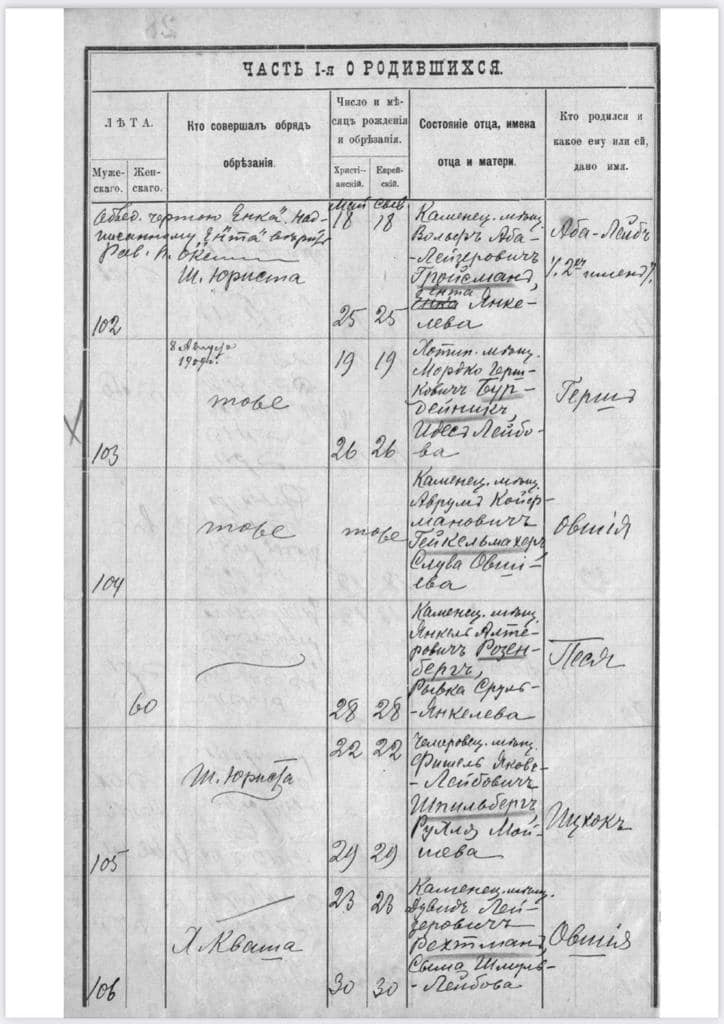 28
ЧАСТЬ I-я О РОДИВШИХСЯ.
ЛѢТА.
Муже-
скаго.
Жен-
скаго.
Кто совершалъ обрядъ
обрѣзанія.
Число и мѣ-
сяцъ рожденія
и обрѣзанія.
Христі-
анскій.
Еврей-
скій.
Состояніе отца, имена
отца и матери.
Кто родился и
какое ему или ей,
дано имя.
чертою „Енка“ над-
писанному „Ента“
Рав.
Ш. Юриста
102
Май
18
18
25
25
Каменец. мѣщ.
Вольфъ Аба-
Лейзеровичъ
Гройсманъ,
Ента
Янке-
лева
Аба-Лейбъ
103
8 Август
1909г.
тоже
19
19
26
26
Хотин. мѣщ.
Мордко Герш-
ковичъ Бур-
дейникъ,
Идесъ Лейбо-
ва
Гершъ
104
тоже
тоже
Каменец. мѣщ.
Аврумъ Койф-
мановичъ
Гейкельмахеръ,
Слува Овшi-
ева
Овшія
60
28
28
Каменец. мѣщ.
Янкель Алте-
ровичъ Розен-
бергъ,
Рывка Сруль-
-Янкелева
Песя
105
Ш. Юриста
22
22
29
29
Чемеровец. мѣщ.
Фишель Янкев-
-Лейбовичъ
Шпильбергъ,
Рухля Мой-
шева
Ицхокъ
106
Х. Кваша
23
23
30
30
Каменец. мѣщ.
Дувидъ Лей-
зеровичъ
Рехтманъ,
Сыма Шмуль-
-Лейбова
Овшія